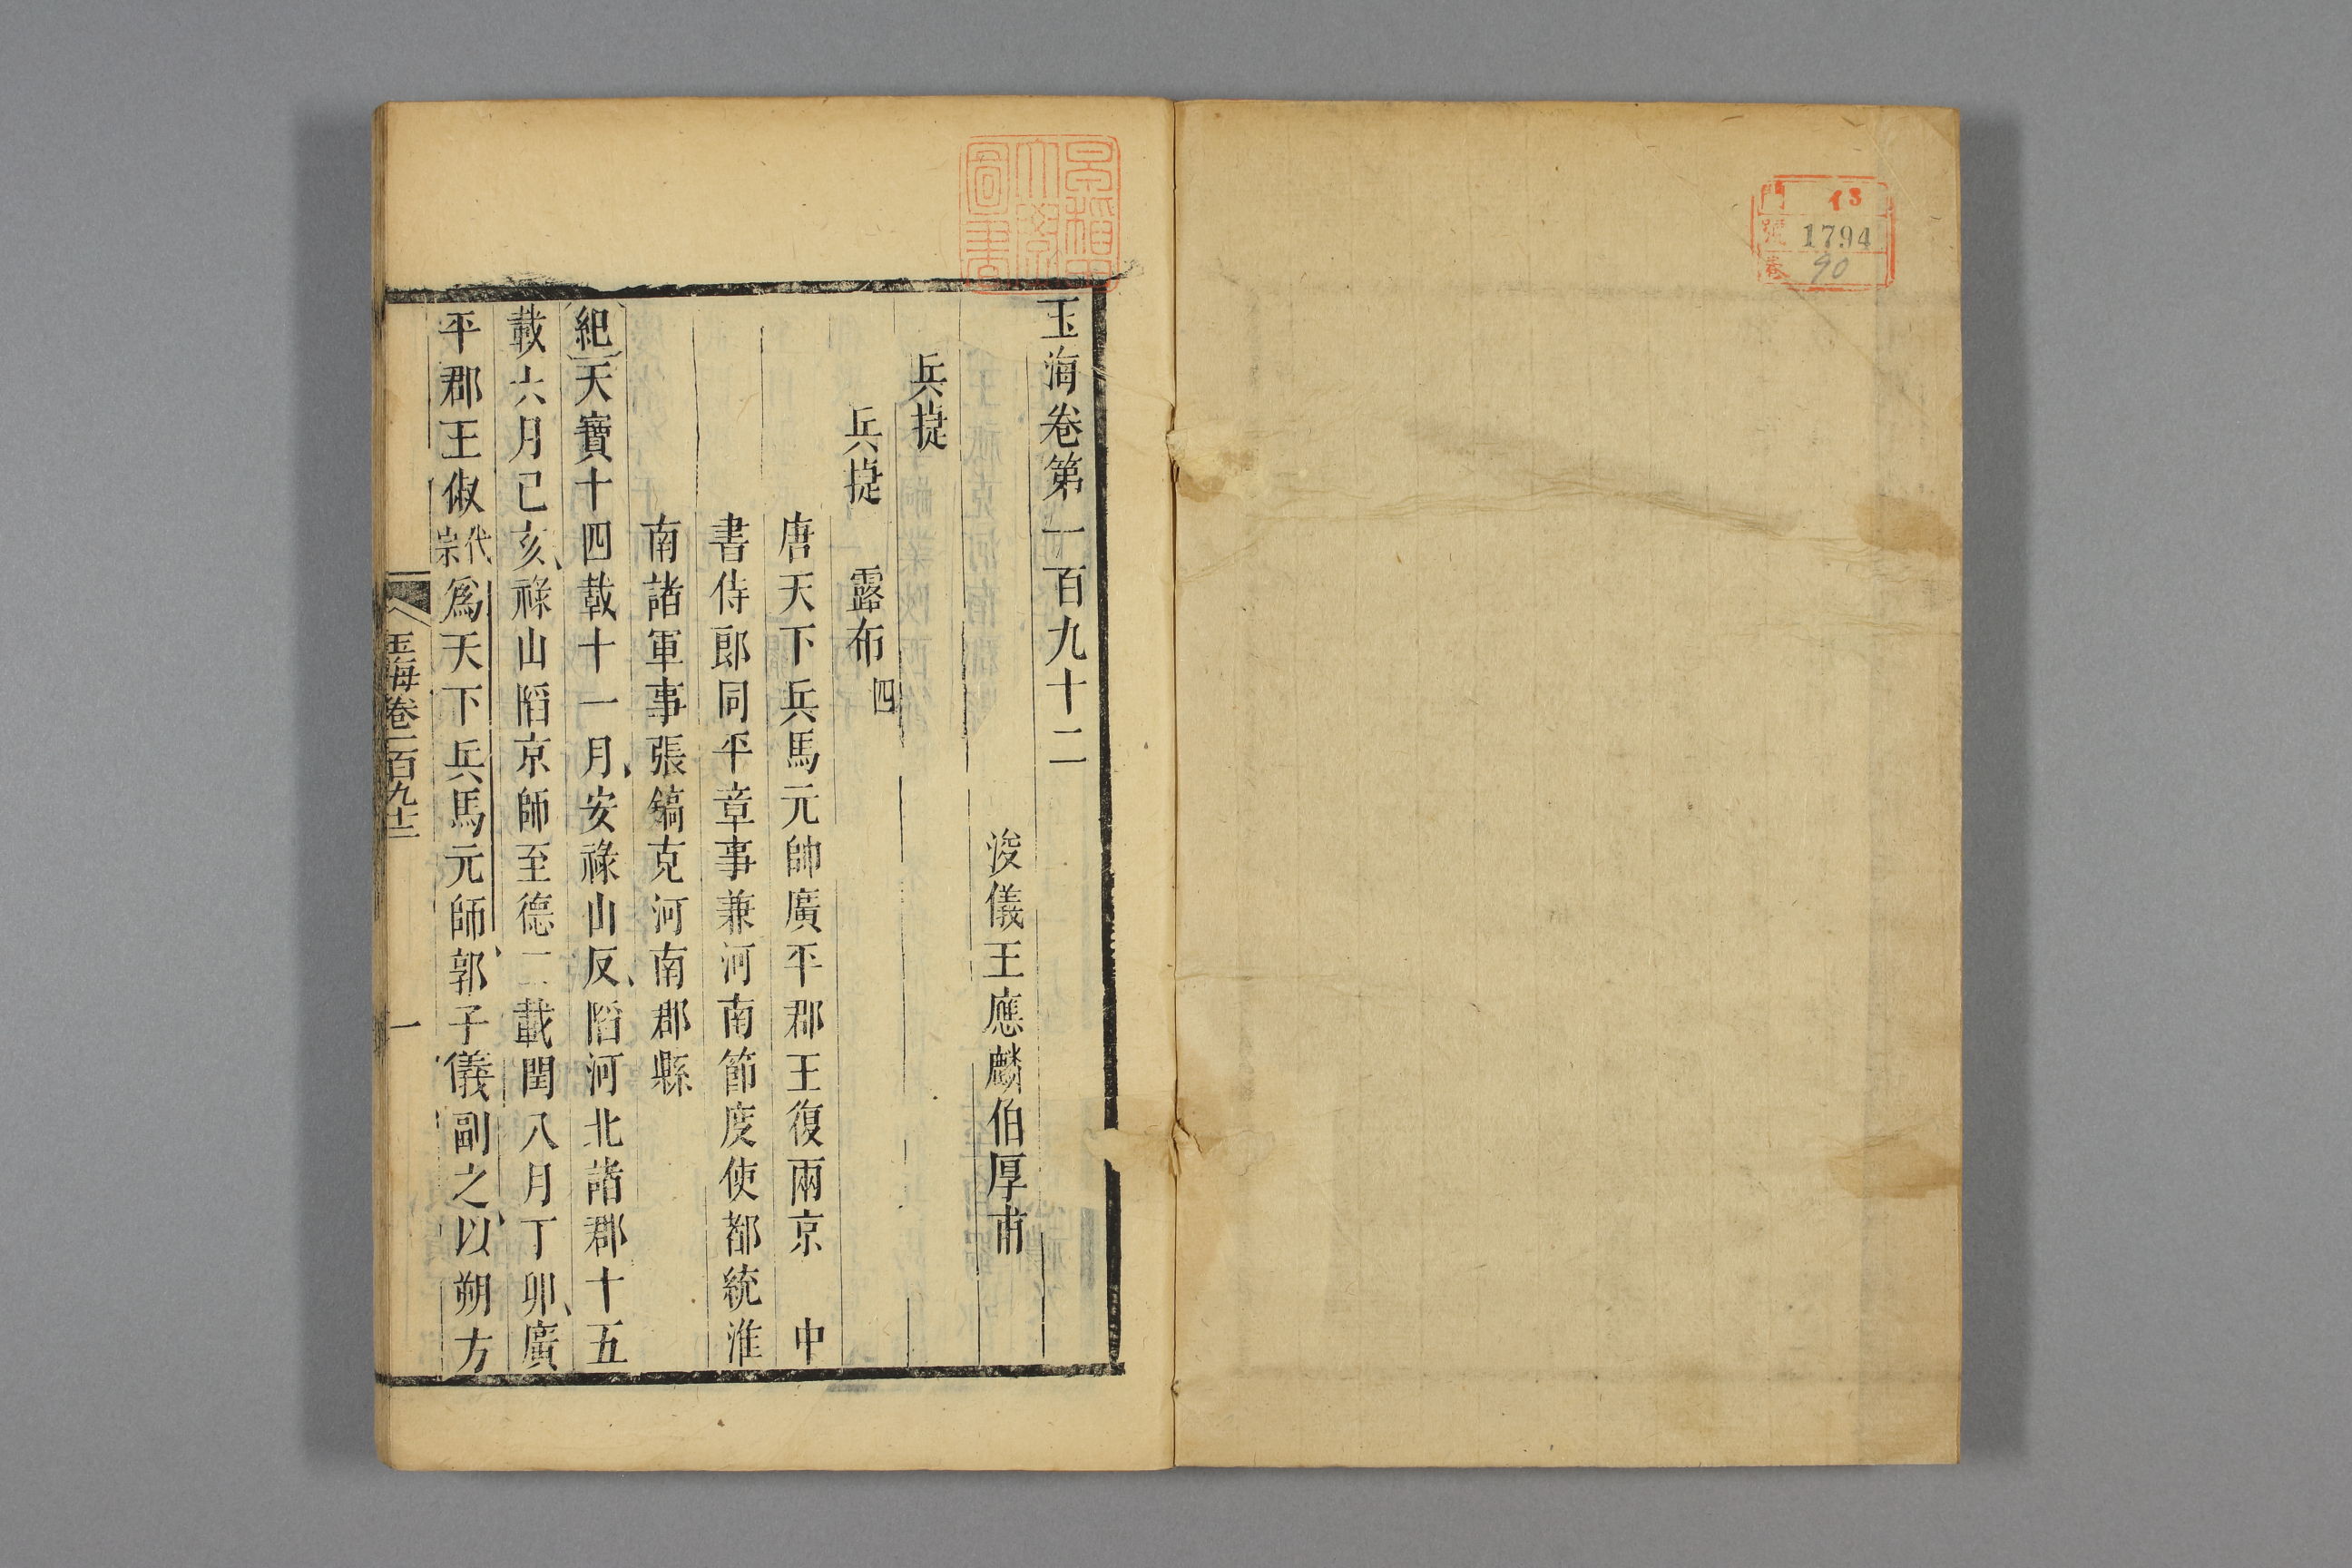 門 13
號 1794
卷 90
早稻田大學圖書
玉海卷第一百九十二
浚儀王應麟伯厚甫
兵捷
兵捷 露布 四
唐天下兵馬元帥廣平郡王復兩京 中
書侍郎同平章事兼河南節度使都統淮
南諸軍事張鎬克河南郡縣
紀天寶十四載十一月安祿山反陷河北諸郡十五
載六月己亥祿山陷京師至德二載閏八月丁卯廣
平郡王俶代宗爲天下兵馬元帥郭子儀副之以朔方
玉海卷一百九十二 一